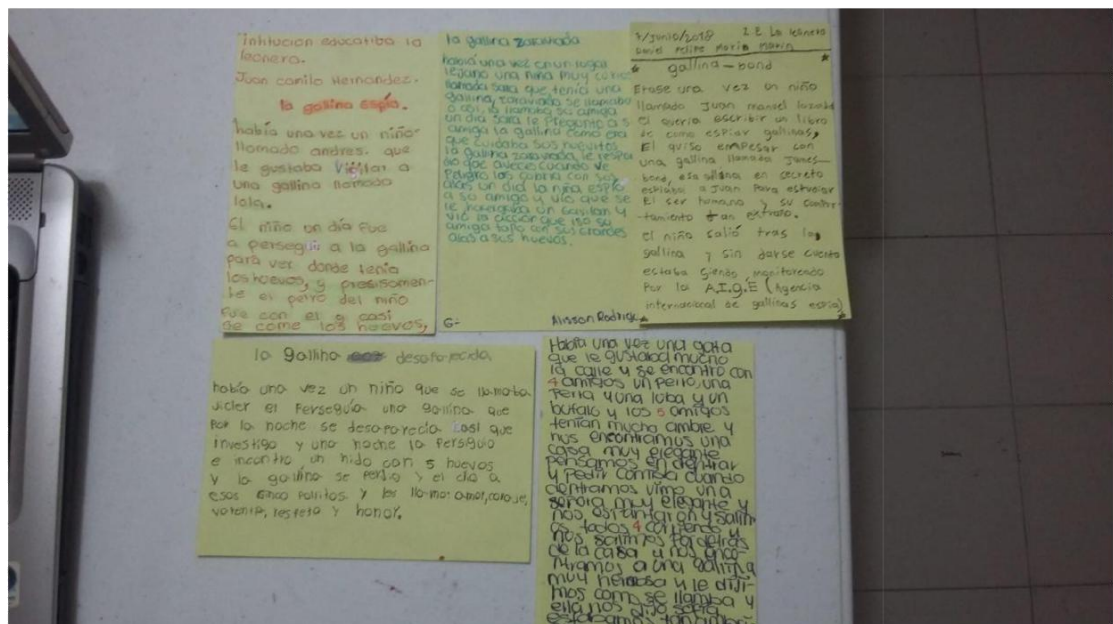 intitucion educatiba la
leonera.
Juan camilo Hernandez.
la gallina espia.
había una vez un niño
llamado andres. que
le gustaba vigilar a
una gallina llamada
lola.
El niño un día fue
a perseguir a la gallina
para ver donde tenia
los huevos, y presisamen-
te el perro del niño
fue con el y casi
se come los huevos,
la gallina zaraviada
había una vez en un lugar
lejano una niña muy
llamada sara que tenía una
gallina zaraviada se llamaba
o así, la llamaba su amiga
un día sara le Pregunto a s
amiga la gallina como era
que cuidaba sus huevitos
la gallina zaraviada, le respon
dio que aveces cuando ve
Peligro los cubria con sus
alas un día la niña espio
a su amiga y vio que se
le un Gavilan y
vio la acción que iso su
amiga tapo con sus grandes
alas a sus huevos.
6- Alisson Rodrigue
7/Junio/2018 I.E. La leonera
Daniel Felipe Marin Marin
* gallina-bond *
Erase una vez un niño
llamado Juan manuel
el queria escribir un libro
de como espiar gallinas,
El quiso empesar con
una gallina llamada James-
bond, esa gallina en secreto
espiaba a Juan Para estudiar
El ser humano y su compor-
tamiento tan extraño.
el niño salió tras la
gallina y sin darse cuenta
estaba siendo monitoreado
Por la A.I.G.E (Agencia
internacional de gallinas espia)
la gallina desaparecida
había una vez un niño que se llamaba
victer el Perseguía una gallina que
Por la noche se desaparecia así que
investigo y una noche la Persiguio
e incontro un nido con 5 huevos
y la gallina se perdio y el cio a
esos cinco Pollitos y los llamo: amor, coraje,
valentia, respeto y honor.
Había una vez una gata
que le gustaba mucho
la calle y se encontro con
4 amigos un perro, una
perra y una loba y un
bufalo y los 5 amigos
tenían mucha ambre y
nus encontramus una
casa muy elegante
pensamos en dentrar
y pedir comida cuando
dentramos vimo una
señora muy elegante y
nos espantaron y salim
os todos 4 corriendo y
nos salimos por detras
de la casa y nos enco
ntramos a una gallina
muy hermosa y le diji-
mos como se llamba y
ella nos dijo sara
estabamos tan